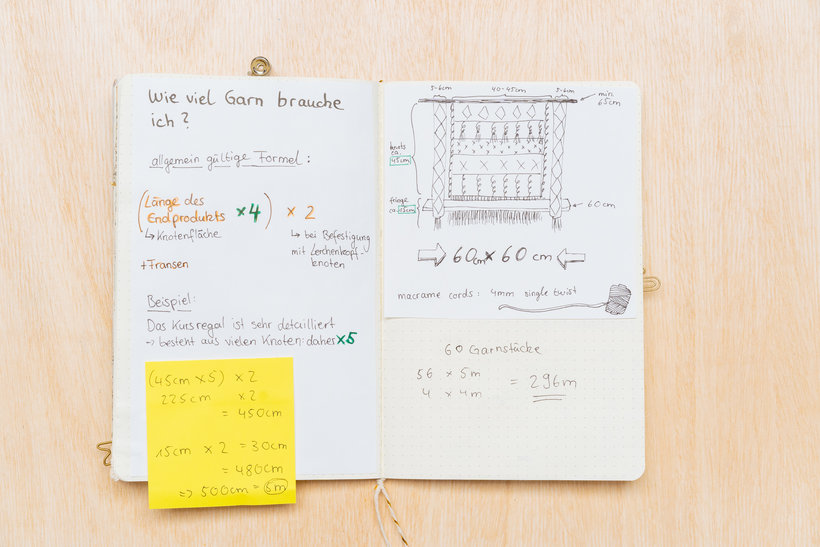 Wie viel Garn brauche
ich?
allgemein gültige Formel:
(Länge des
Endprodukts ×4) × 2
↳ Knotenfläche
↳ bei Befestigung
mit Lerchenkopf-
knoten
+Fransen
Beispiel:
Das Kursregal ist sehr detailliert
→ besteht aus vielen Knoten: daher ×5
(45cm ×5) × 2
225cm ×2
= 450cm
15cm × 2 = 30cm
= 480cm
=> 500cm = 5m
5-6cm 40-45cm 5-6cm
min.
65cm
knots
ca.
45cm
fringe
ca. 15cm
60cm
60cm × 60cm
macrame cords: 4mm single twist
60 Garnstücke
56 × 5m
4 × 4m
= 296m